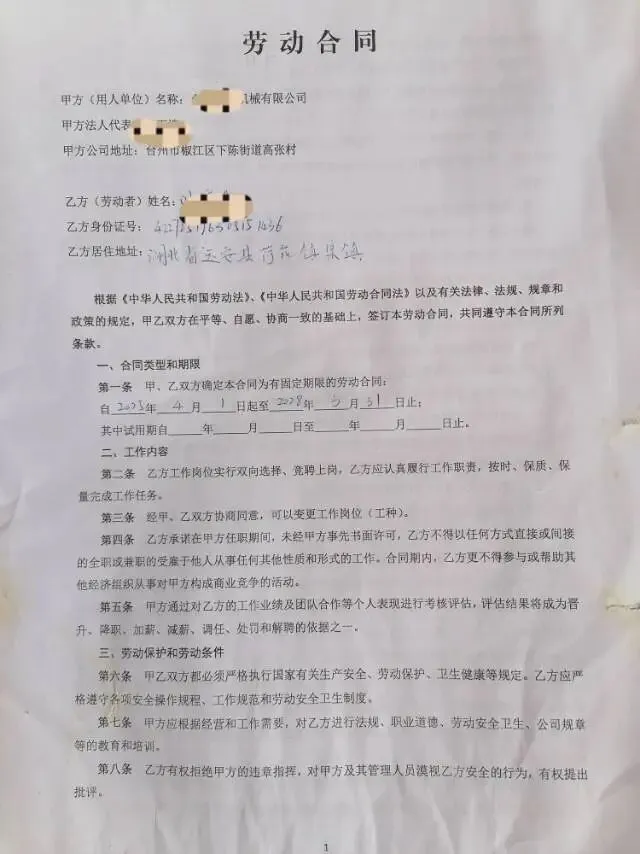 劳动合同
甲方（用人单位）名称：机械有限公司
甲方法人代表
甲方公司地址：台州市椒江区下陈街道高张村
乙方（劳动者）姓名：
乙方身份证号：
乙方居住地址：湖北省远安县荷花镇
根据《中华人民共和国劳动法》、《中华人民共和国劳动合同法》以及有关法律、法规、规章和
政策的规定，甲乙双方在平等、自愿、协商一致的基础上，签订本劳动合同，共同遵守本合同所列
条款。
一、合同类型和期限
第一条 甲、乙双方确定本合同为有固定期限的劳动合同：
自2025年4月1日起至2028年3月31日止；
其中试用期自____年____月____日至____年____月____日止。
二、工作内容
第二条 乙方工作岗位实行双向选择、竞聘上岗，乙方应认真履行工作职责，按时、保质、保
量完成工作任务。
第三条 经甲、乙双方协商同意，可以变更工作岗位（工种）。
第四条 乙方承诺在甲方任职期间，未经甲方事先书面许可，乙方不得以任何方式直接或间接
的全职或兼职的受雇于他人从事任何其他性质和形式的工作。合同期内，乙方更不得参与或帮助其
他经济组织从事对甲方构成商业竞争的活动。
第五条 甲方通过对乙方的工作业绩及团队合作等个人表现进行考核评估，评估结果将成为晋
升、降职、加薪、减薪、调任、处罚和解聘的依据之一。
三、劳动保护和劳动条件
第六条 甲乙双方都必须严格执行国家有关生产安全、劳动保护、卫生健康等规定。乙方应严
格遵守各项安全操作规程、工作规范和劳动安全卫生制度。
第七条 甲方应根据经营和工作需要，对乙方进行法规、职业道德、劳动安全卫生、公司规章
等的教育和培训。
第八条 乙方有权拒绝甲方的违章指挥，对甲方及其管理人员漠视乙方安全的行为，有权提出
批评。
1